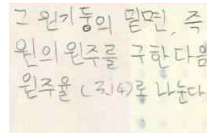 그 원기둥의 밑면, 즉
원의 원주를 구한다음
원주율 (3.14)로 나눈다